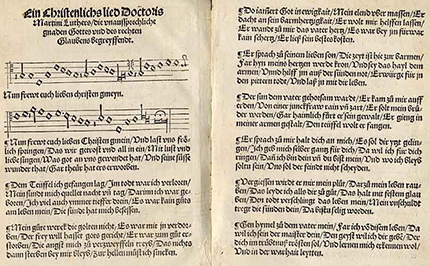 Ein Christenlichs lied Doctoris
Martini Luthers/die unaussprechliche
gnaden Gottes und des rechten
Glaubens begreyffendt.
Nun frewt euch lieben christen gmeyn.
¶Nun frewt euch lieben Christen gmein/Und last uns frö-
lich springen/Das wir getrost und all in ein/Mit lust und
liebe singen/Was got an uns gewendet hat/Und sein süsse
wunder that/Gar theur hat ers erworben.
¶Dem Teüffel ich gefangen lag/im todt war ich verloren/
Mein sünde mich quellet nacht und tag/Darinn ich war ge-
boren/Ich viel auch ymmer tieffer dreyn/Es war kain güts
am leben mein/Die sünde hat mich besessen.
¶Mein güte werck die golten nicht/Es war mit in verdor-
ben/Der frey will hasset gots gericht/Er war zum güt er-
storben/Die angst mich zu verzweyffeln treyb/Das nichts
dann sterben bey mir bleyb/Zur hellen müst ich sincken.
¶Do iamert Got in ewigkait/Mein elend uber massen/Er
dacht an sein barmhertzigkait/Er wolt mir helffen lassen/
Er wandt zu mir das vater hertz/Es war bey jm fürwar
kain schertz/Er ließ sein bestes kosten.
¶Er sprach zu seinem lieben son/Die zeyt ist hie zur barmen/
Far hyn meins hertzen werde kron/Und sey das hayl dem
armen/Und hilff jm auß der sünden not/Er würge für jn
den pittern todt/Und laß jn mit dir leben.
¶Der son dem vater gehorsam ward/Er kam zu mir auff
erden/Von einer junckfraw rain uñ zart/Er solt mein brü-
der werden/Gar haimlich fürt er sein gewalt/Er gieng in
meiner armen gestalt/Den teüffel wolt er fangen.
¶Er sprach zu mir halt dich an mich/Es sol dir yetzt gelin-
gen/Ich gib mich selber gantz für dich/Da wil ich für dich
ringen/Dañ ich bin dein uñ du bist mein/Und wo ich bleyb
soltu sein/Uns sol der feind nicht schayden.
¶Vergiessen wirdt er mir mein plut/Darzu mein leben rau-
ben/Das leyde ich alles dir zu gut/Das halt mit festem glau-
ben/Den todt verschlingt das leben mein/Mein unschuldt
tregt die sünden dein/Da bistu selig worden.
¶Gen hymel zu dem vater mein/Far ich von disem leben/Da
wil ich sein der maister dein/Den geyst wil ich dir geben/Der
dich in trübnuß trösten sol/Und lernen mich erkennen wol/
Und in der warhait leyten.